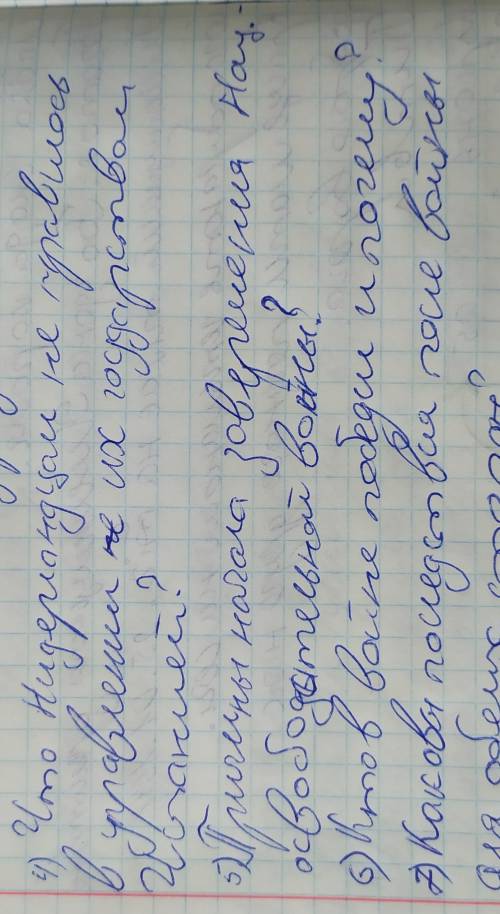 4) Что Нидерландцам не нравилось
в управлении их государством
Испанией?
5) Причины начала завершения Нац.-
освободительной войны?
6) Кто в войне победил и почему?
7) Каковы последствия после войны
для обеих сторон?